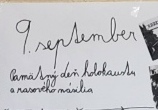 9. september
Pamätný deň holokaustu
a rasového násilia